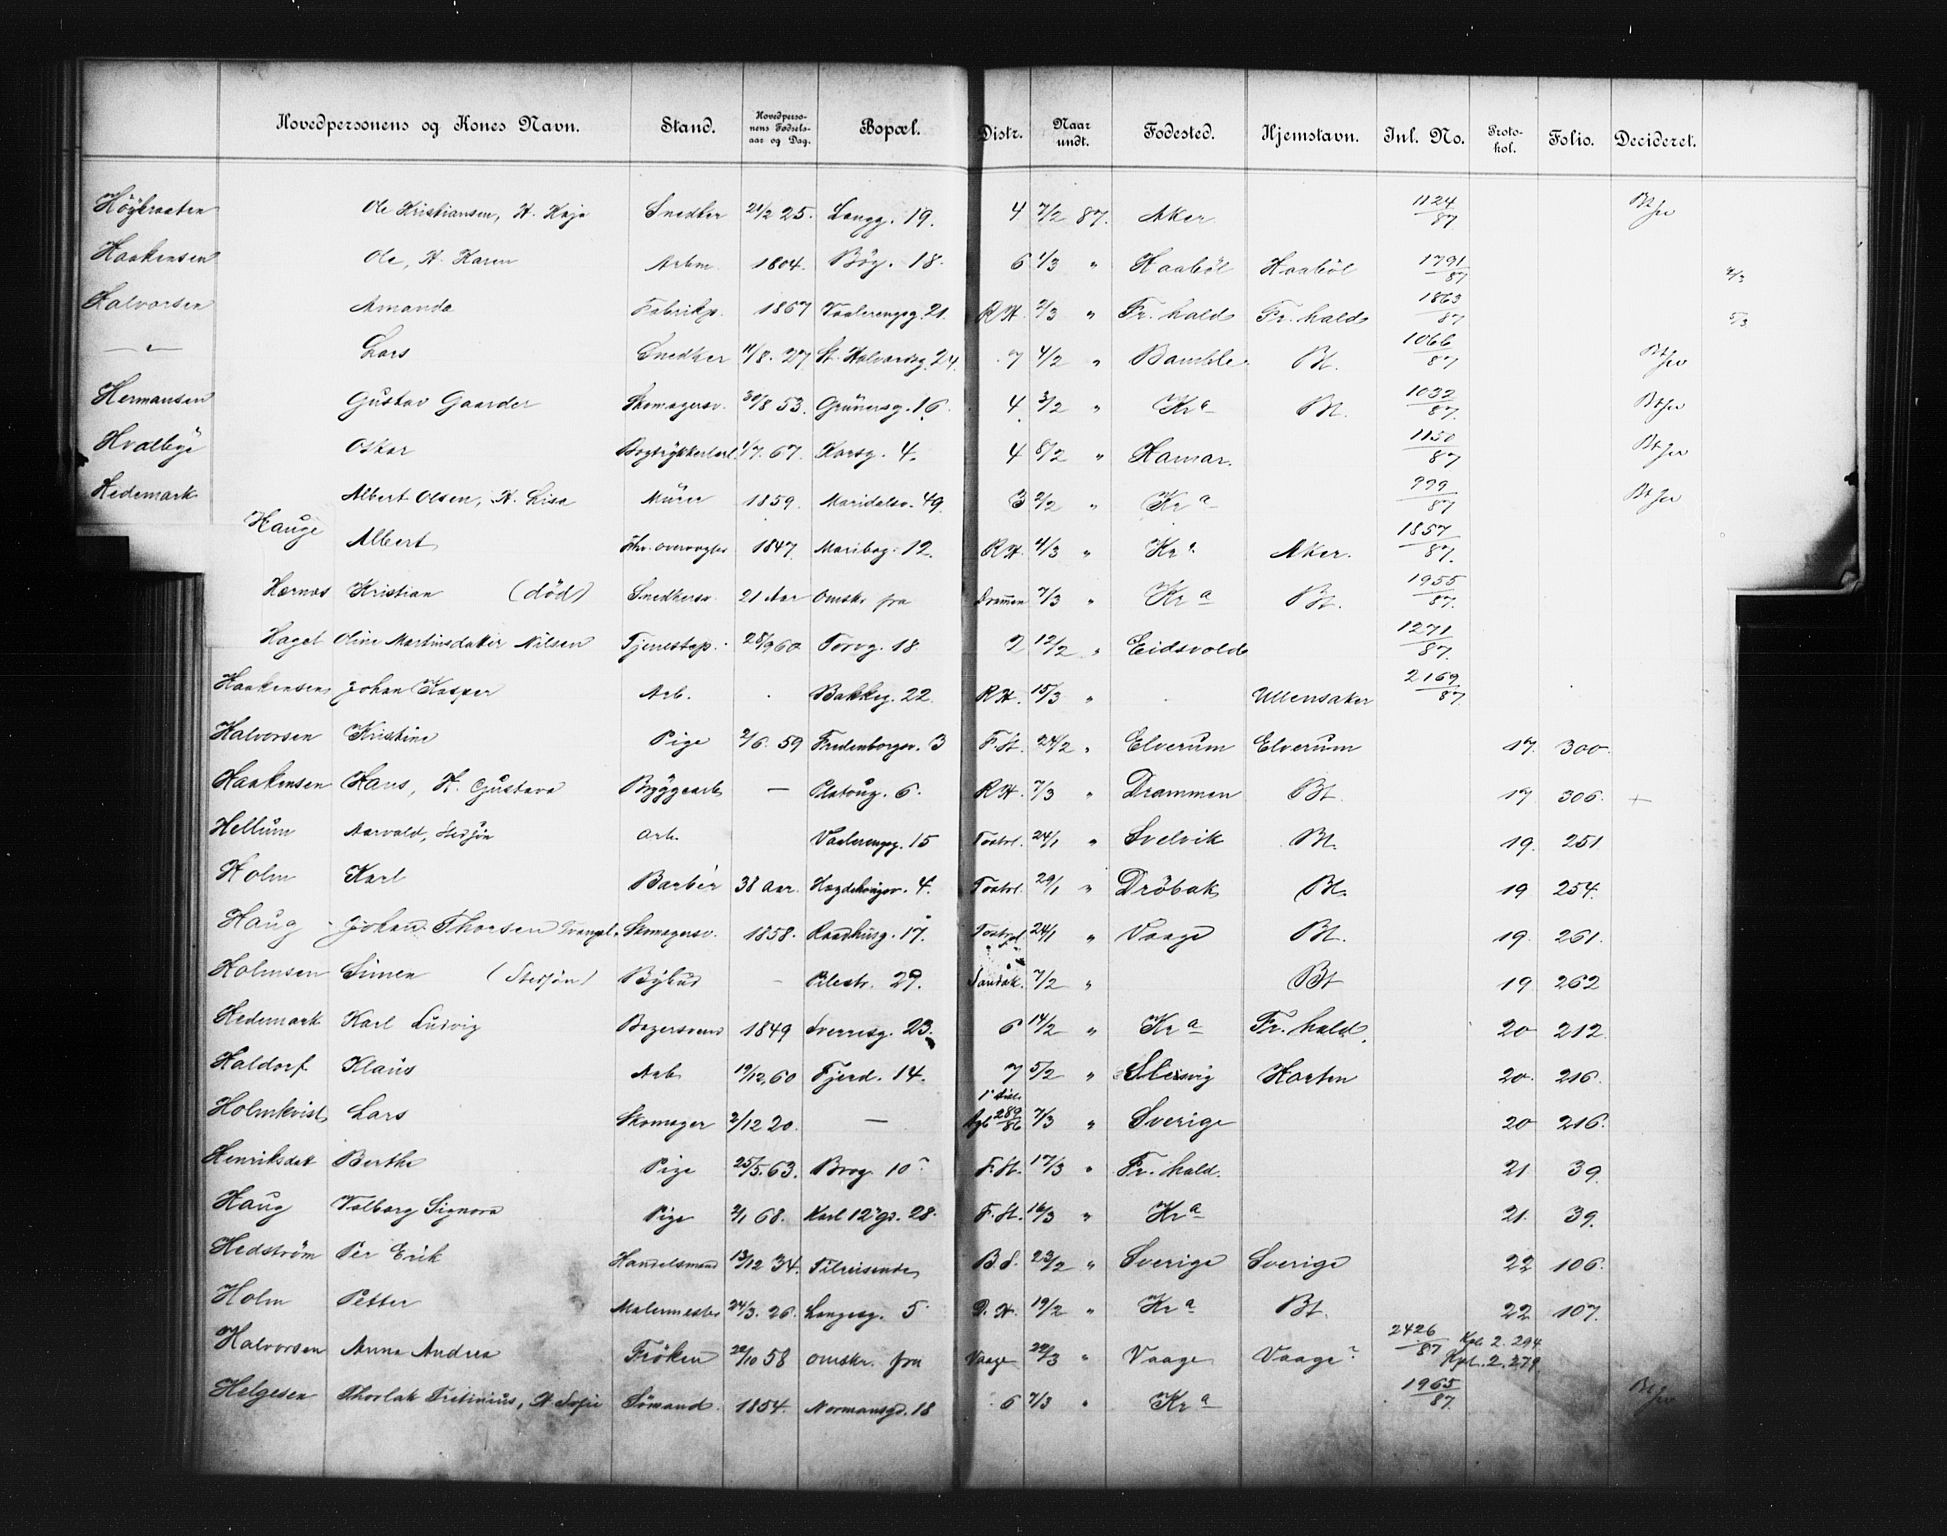 Hovedpersonens og Kones Navn. Stand. Hovedperso-nens Fødsels-aar og Dag. Bopæl. Distr. Naar undt. Fødested. Hjemstavn. Inl. No. Proto-kol. Folio. Decideret.
Ole Kristiansen, H. Kaja Snedker 21/2 25. Langg. 19. 4 7/2 87. Aker 1124/87
Haakensen Ole, H. Karen Arbm 1804. Bög. 18. 6 1/3 " Haaböl Haaböl 1791/87 4/3
Halvorsen Amanda Fabrikp. 1867 Vaalerengg. 21. R.H. 2/3 " Fr. hald Fr. hald 1863/87 5/3
— " — Lars Snedker 11/8. 27 St. Halvardsg. 24. 7 4/2 " Bamble Bt. 1066/87
Hermansen Gustav Gaarder Skomagersv. 30/8 53. Grünersg. 16. 4 3/2 " Kra Bt. 1032/87
Hvalbye Oskar 1/7. 67. Korsg. 4. 4 8/2 " Hamar. 1150/87
Hedemark Albert Olsen, H. Lisa Mürer 1859. Maridalsv. 49. 3 2/2 " Kra 999/87
Hauge Albert 1847. Maribog. 12. R.H. 4/3 " Kra Aker. 1857/87
Hærnæs Kristian (död) Snedkersv. 21 Aar Omskr. fra Drammen 7/3 " Kra Bt. 1955/87
Haget Oline Martinsdatter Nilsen Tjenestep. 28/9 60 Torvg. 18. 2 12/2 " Eidsvold 1271/87
Haakensen Johan Kasper Arb. Bakkeg. 22. R.H. 15/3 " Ullensaker 2169/87
Halvorsen Kristine Pige 2/6. 59 Fredenborgv. 3 F.H. 24/2 " Elverum Elverum 17. 300.
Haakensen Hans, H. Gustava Bryggearb — Platoug. 6. R.H. 7/3 " Drammen Bt. 17 306. +
Hellum Aarvald, Stedsön Arb. Vaalerengg. 15 24/1 " Svelvik Bt. 19. 251.
Holm Karl Barbér 38 Aar. Hegdehaugsv. 4. 29/1 " Dröbak Bt. 19 254.
Haug Johan Thorsen Skomagersv. 1858. Raadhusg. 17. 24/1 " Vaage Bt. 19. 261.
Holmsen Simen (Stedsön) Bybud Pilestr. 29. Sandak. 7/2 " Bt 19 262
Hedemark Karl Ludvig Bagersvend 1849 Sverresg. 23. 6 14/2 " Kra Fr. hald. 20 212
Haldorf Klaus Arb 19/12 60 Fjerd. 14. 7 5/2 " Slesvig Horten 20. 216.
Holmkvist Lars Skomager 2/12 20. — 289/86 7/3 " Sverige 20 216.
Henriksdat Berthe Pige 25/5. 63. Brog. 10 F.H. 17/3 " Fr. hald. 21 39.
Haug Valborg Signora Pige 2/1 68. Karl 12' gd. 28. F.H. 16/3 " Kra 21. 39.
Hedström Per Erik Handelsmand 13/12 34. Tilreisende B.S. 23/2 " Sverige Sverige 22 106.
Holm Petter Malermester 24/3. 26. Langesg. 5. D.H. 19/2 " Kra Bt. 22 107.
Halvorsen Anna Andrea Fröken 22/10 58 Omskr. fra Vaage 22/3 " Vaage Vaage? 2426/87 Kpt. 2. 294 Kpt. 2. 279
Helgesen Thorlak, H. Sofie Sömand. 1854. Normansgd. 18 6 7/3 " Kra 1965/87